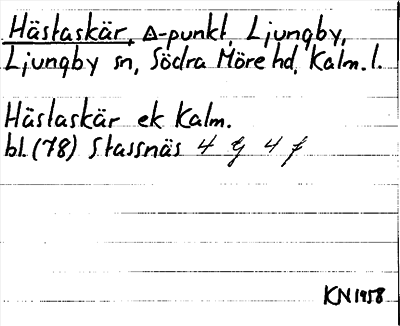 Hästaskär, Δ-punkt, Ljungby,
Ljungby sn, Södra Möre hd, Kalm. l.
Hästaskär ek Kalm.
bl. (78) Stassnäs 4 g 4 f
KN 1958